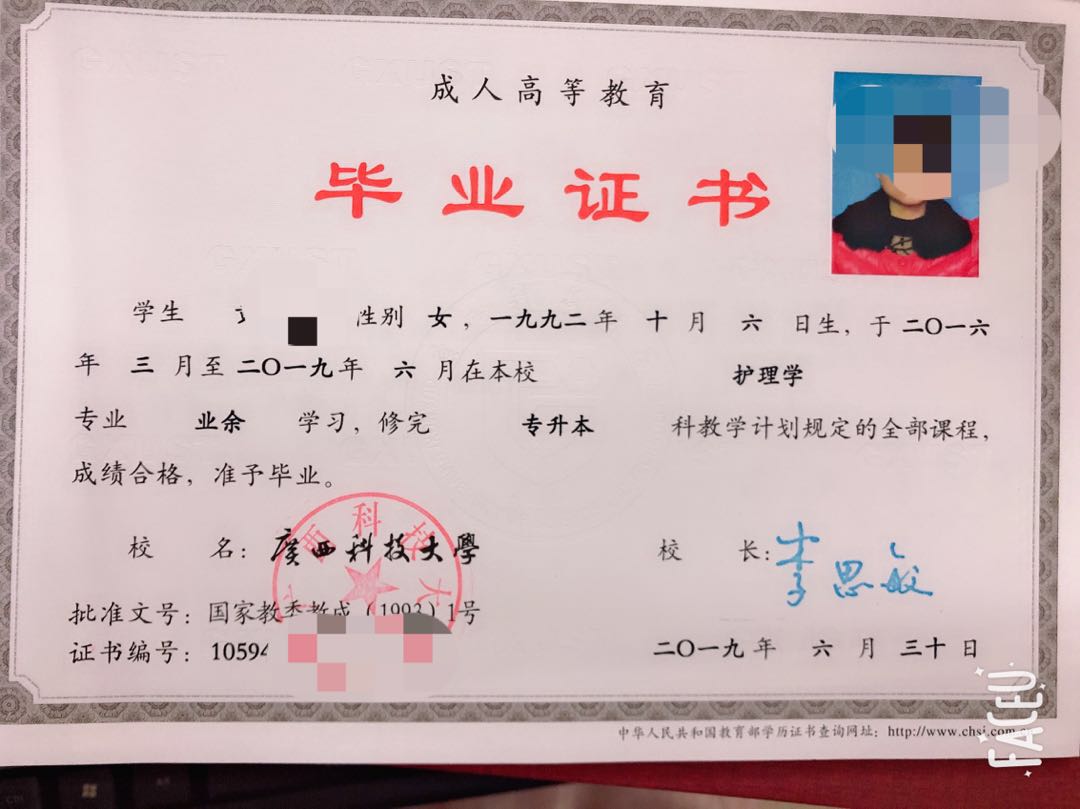 成人高等教育
毕业证书
学生 性别 女，一九九二年 十 月 六 日生，于二〇一六
年 三 月至二〇一九年 六 月在本校 护理学
专业 业余 学习，修完 专升本 科教学计划规定的全部课程，
成绩合格，准予毕业。
校 名：廣西科技大學 校 长：李思敏
批准文号：国家教委教成（1993）1号
证书编号：10594
二〇一九年 六 月 三十 日
中华人民共和国教育部学历证书查询网址：http://www.chsi.com.cn
西科技大
FACEU